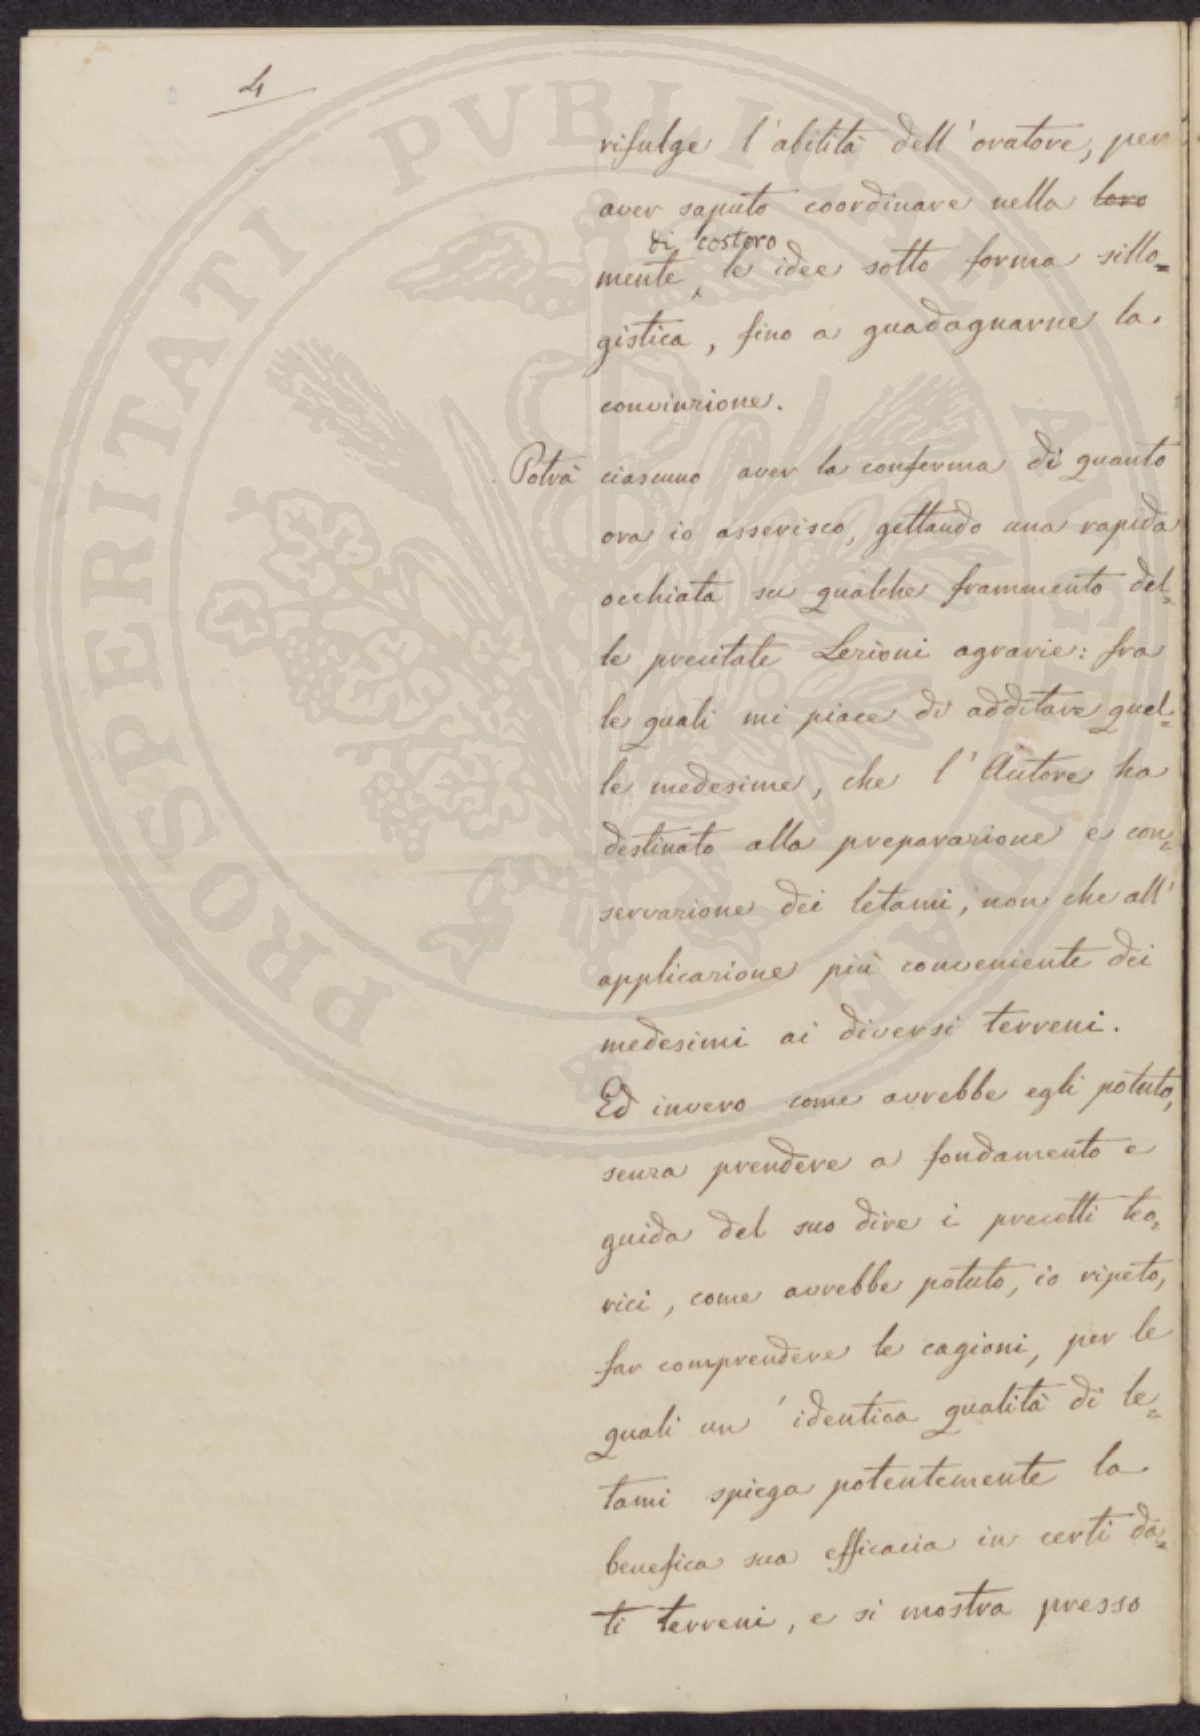 4
rifulge l'abilità dell'oratore, per
aver saputo coordinare nella loro
di costoro
mente le idee sotto forma sillo=
gistica, fino a guadagnarne la
convinzione.
Potrà ciascuno aver la conferma di quanto
ora io asserisco, gettando una rapida
occhiata su qualche frammento del=
le precitate Lezioni agrarie: fra
le quali mi piace di additare quel=
le medesime, che l'Autore ha
destinato alla preparazione e con=
servazione dei letami, non che all'
applicazione più conveniente dei
medesimi ai diversi terreni.
Ed invero come avrebbe egli potuto,
senza prendere a fondamento e
guida del suo dire i precetti teo=
rici, come avrebbe potuto, io ripeto,
far comprendere le cagioni, per le
quali un'identica qualità di le=
tami spiega potentemente la
benefica sua efficacia in certi da=
ti terreni, e si mostra presso
PROSPERITATI PVBLICAE AVGENDAE